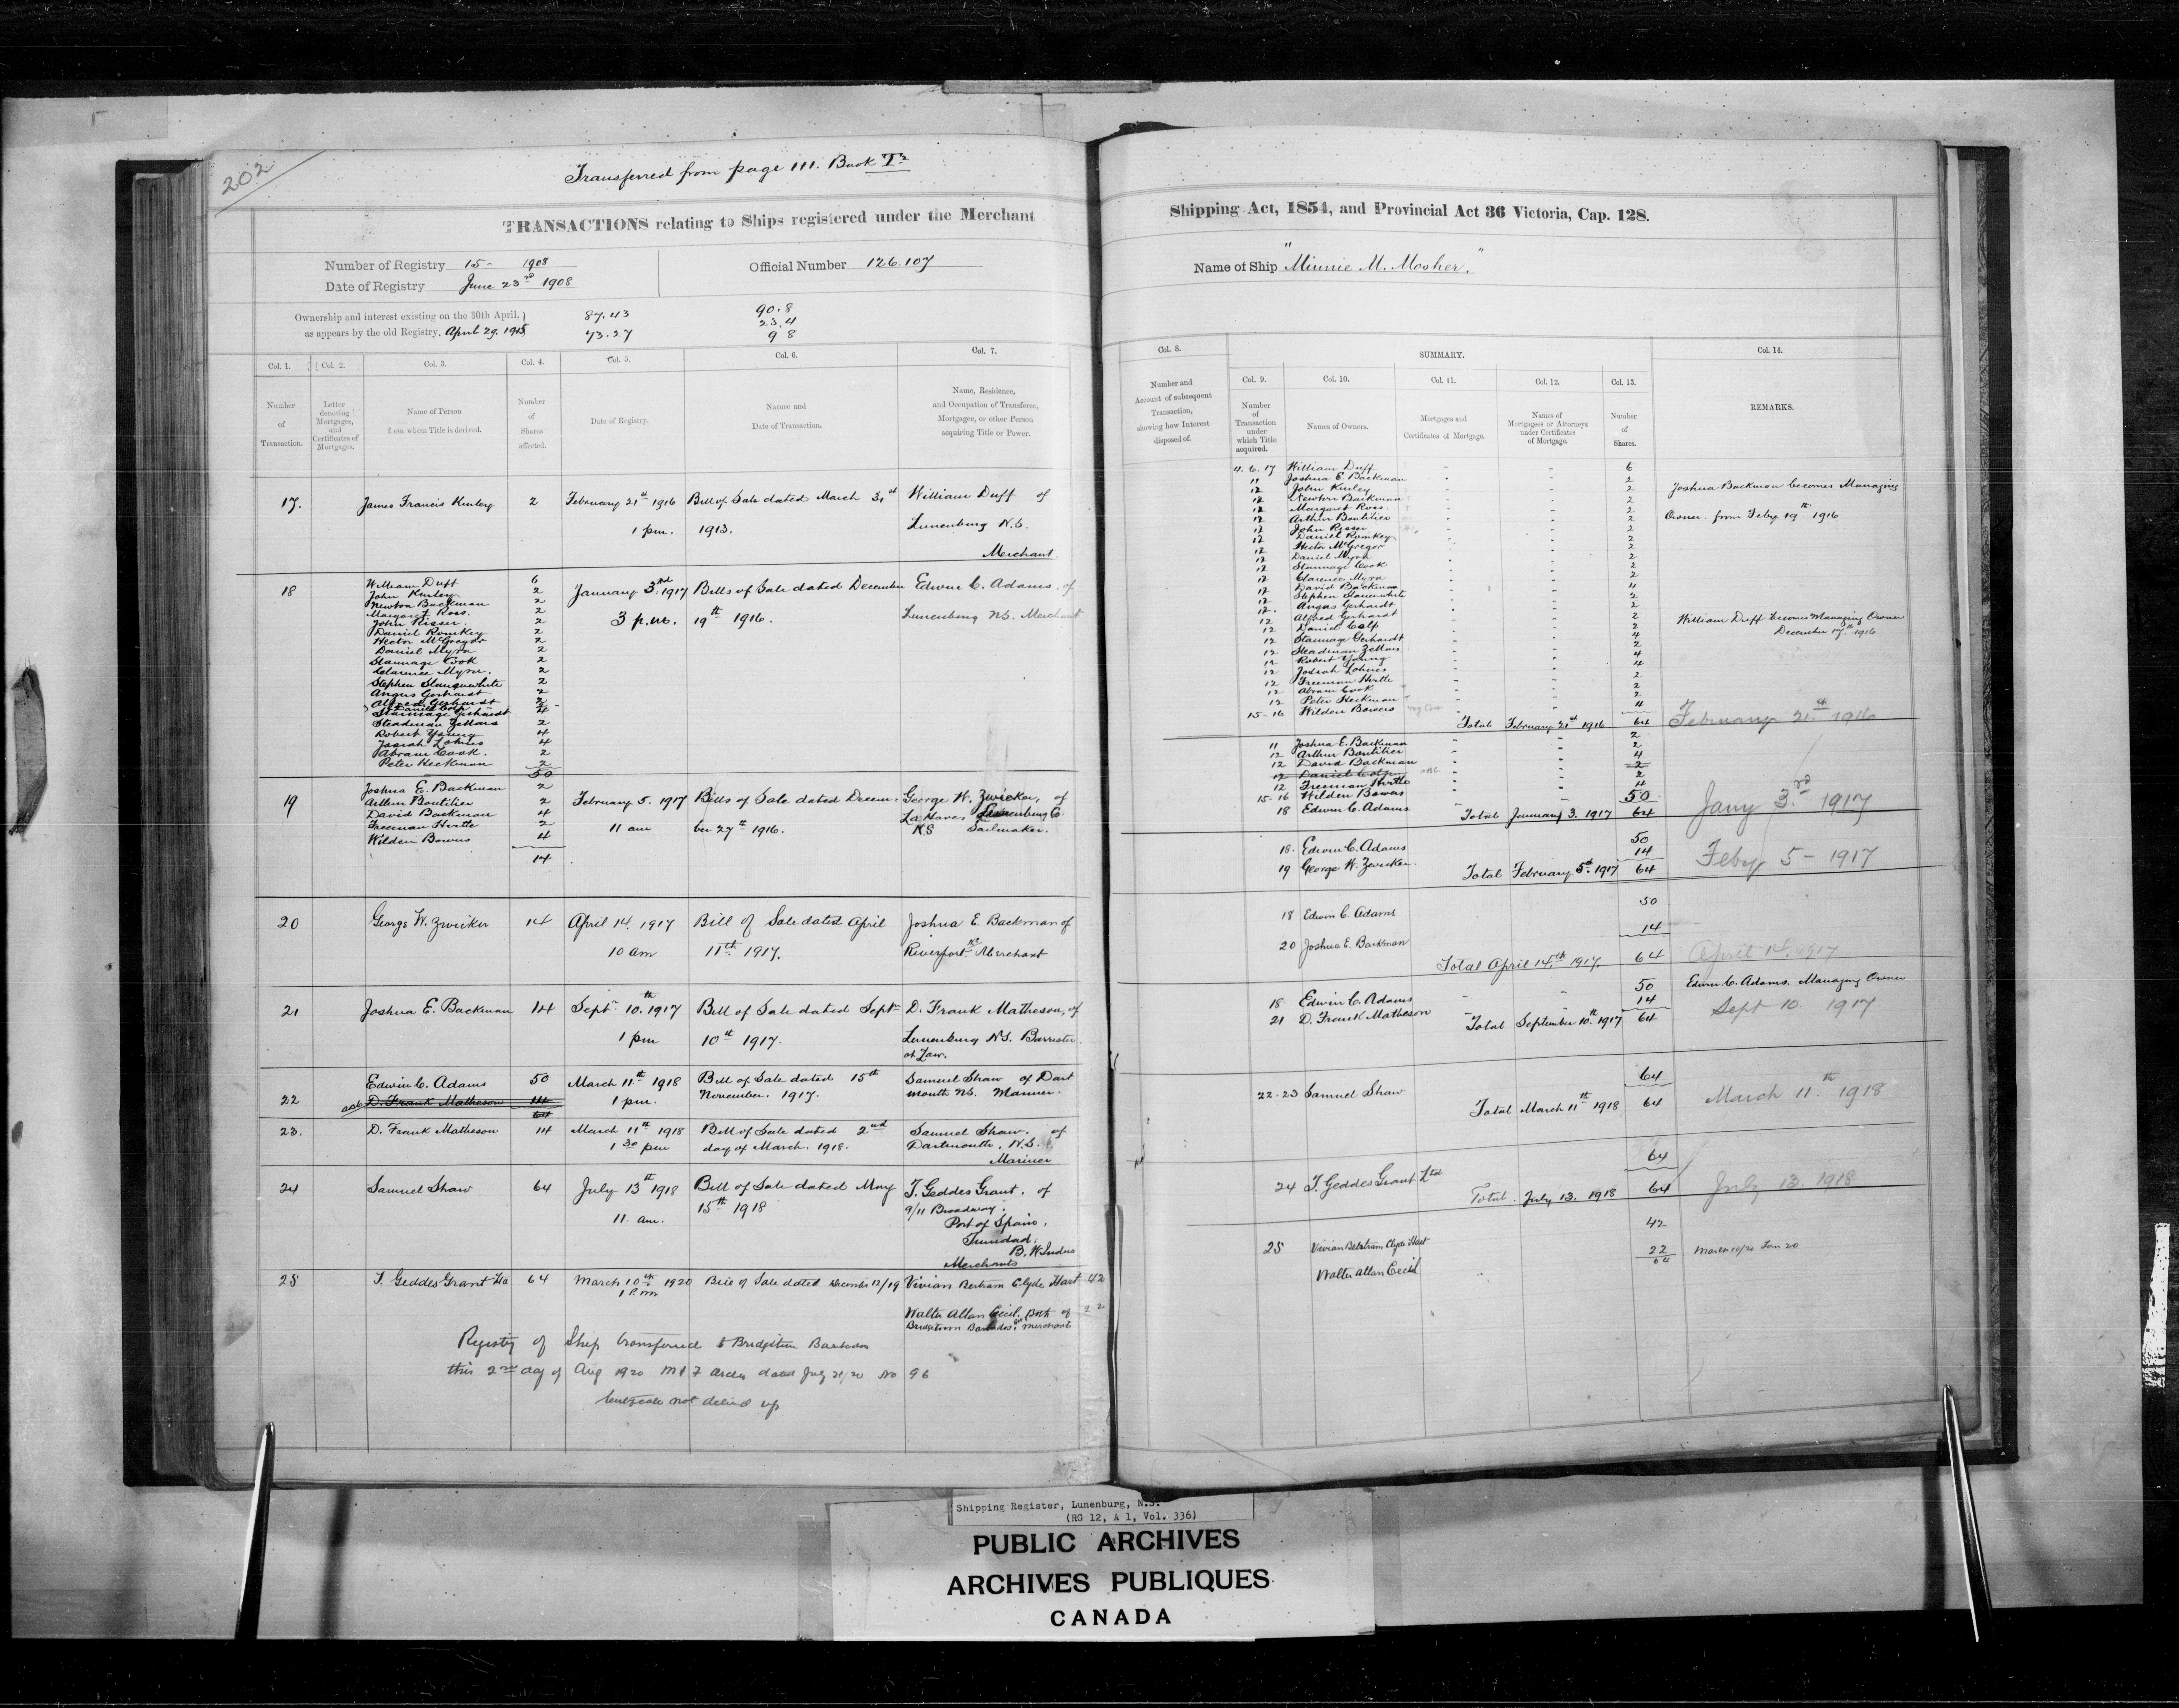 202
Transferred from page 111. Book
TRANSACTIONS relating to Ships registered under the Merchant
Number of Registry 15- 1908
Official Number 126.107
Date of Registry June 23rd 1908
Ownership and interest existing on the 30th April,
87.43
90.8
23.4
as appears by the old Registry, April 29. 1915
73.27
9 8
Col. 1.
Col. 2.
Col. 3.
Col. 4.
Col. 5.
Col. 6.
Col. 7.
Number of Transaction.
Letter denoting Mortgages, and Certificates of Mortgages.
Name of Person from whom Title is derived.
Number of Shares affected.
Date of Registry.
Nature and Date of Transaction.
Name, Residence, and Occupation of Transferee, Mortgagee, or other Person acquiring Title or Power.
17. James Francis Kinley 2 February 21st 1916 Bill of Sale dated March 31st William Duff of
1 pm. 1913. Lunenburg N.S.
Merchant
18
William Duff 6
John Kinley 2
Newton Backman 2
Margaret Ross. 2
John Risser. 2
Daniel Romkey 2
Hector McGregor 2
Daniel Myra 2
Stannage Cook 2
Clarence Myra. 2
Stephen Slauenwhite 2
Angus Gerhardt 2
Alfred Gerhardt 2
Daniel Colp
Stannage Gerhardt 4
Steadman Zellars 2
Robert Young 4
Josiah Lohnes 4
Abram Cook. 2
Peter Heckman 2
50
January 3rd. 1917 Bills of Sale dated December Edwin C. Adams. of
3 p.m. 19th 1916. Lunenburg N.S. Merchant
19
Joshua E. Backman 2
Arthur Boutilier 2
David Backman 4
Freeman Hirtle 2
Wilden Bowers 4
14
February 5. 1917 Bills of Sale dated Decem- George W. Zwicker, of
11 am ber 27th 1916. La Have Lunenburg Co.
NS Sailmaker.
20 George W. Zwicker 14 April 14. 1917 Bill of Sale dated April Joshua E Backman of
10 am 11th 1917. Riverport NS Merchant
21 Joshua E. Backman 14 Sept. 10th. 1917 Bill of Sale dated Sept D. Frank Matheson, of
1 pm 10th 1917. Lunenburg NS. Barrister
at Law.
22 Edwin C. Adams 50 March 11th 1918 Bill of Sale dated 15th Samuel Shaw of Dart
D. Frank Matheson 14 1 pm. November. 1917. mouth NS. Mariner.
64
23. D. Frank Matheson 14 March 11th 1918 Bill of Sale dated 2nd Samuel Shaw. of
1 30 pm day of March. 1918. Dartmouth, N.S.
Mariner
24 Samuel Shaw 64 July 13th 1918 Bill of Sale dated May T. Geddes Grant, of
11. am. 15th 1918 9/11 Broadway.
Port of Spain,
Trinidad,
B. W Indies
Merchants
25 T. Geddes Grant Ltd 64 March 10th 1920 Bill of Sale dated December 12/19 Vivian Bertram Clyde Hart 42
1 P.m
Walter Allan Cecil. Both of 22
Bridgetown Barbados. Merchant
Registry of Ship transferred to Bridgetown Barbados
this 2nd day of Aug 1920 M & F order dated July 21/20 No 96
Certificate not delivd up
Shipping Act, 1854, and Provincial Act 36 Victoria, Cap. 128.
Name of Ship "Minnie M. Mosher."
Col. 8.
SUMMARY.
Col. 14.
Col. 9.
Col. 10.
Col. 11.
Col. 12.
Col. 13.
Number and Account of subsequent Transaction, showing how Interest disposed of.
Number of Transaction under which Title acquired.
Names of Owners.
Mortgages and Certificates of Mortgage.
Names of Mortgagees or Attorneys under Certificates of Mortgage.
Number of Shares.
REMARKS.
11. 6. 17 William Duff 6
11 Joshua E. Backman 2
12 John Kinley 2
12 Newton Backman 2
12 Margaret Ross. 2
12 Arthur Boutilier 2
12 John Risser 2
12 Daniel Romkey 2
12 Hector McGregor 2
12 Daniel Myra 2
12 Stannage Cook 2
12 Clarence Myra 2
12 David Backman 4
12 Stephen Slauenwhite 2
12. Angus Gerhardt 2
12 Alfred Gerhardt 2
12 Daniel Colp 2
12 Stannage Gerhardt 4
12 Steadman Zellars 2
12 Robert Young 4
12 Josiah Lohnes 4
12 Freeman Hirtle 2
12 Abram Cook 2
12 Peter Heckman 2
15-16 Wilden Bowers 4
Total February 21st 1916 64
Joshua Backman becomes Managing
Owner from Feby 19th 1916
William Duff becomes Managing Owner
December 19th 1916
February 21st 1916
11 Joshua E. Backman 2
12 Arthur Boutilier 2
12 David Backman 4
12 Daniel Colp 2
12 Freeman Hirtle 2
15-16 Wilden Bowers 4
18 Edwin C. Adams 50
Total January 3. 1917 64
Jany 3rd. 1917
18. Edwin C. Adams 50
19 George W. Zwicker. 14
Total February 5th. 1917 64
Feby 5 - 1917
18 Edwin C. Adams 50
20 Joshua E. Backman 14
Total April 14th. 1917. 64
April 14. 1917
18 Edwin C. Adams 50
21 D. Frank Matheson 14
Total September 10th. 1917 64
Edwin C. Adams. Managing Owner
Sept 10. 1917
22-23 Samuel Shaw 64
Total March 11th 1918 64
March 11th. 1918
24 T. Geddes Grant Ltd 64
Total July 13. 1918 64
July 13. 1918
25 Vivian Bertram Clyde Hart 42
Walter Allan Cecil 22
64
March 10/20
Shipping Register, Lunenburg, N.S.
(RG 12, A 1, Vol. 336)
PUBLIC ARCHIVES
ARCHIVES PUBLIQUES
CANADA